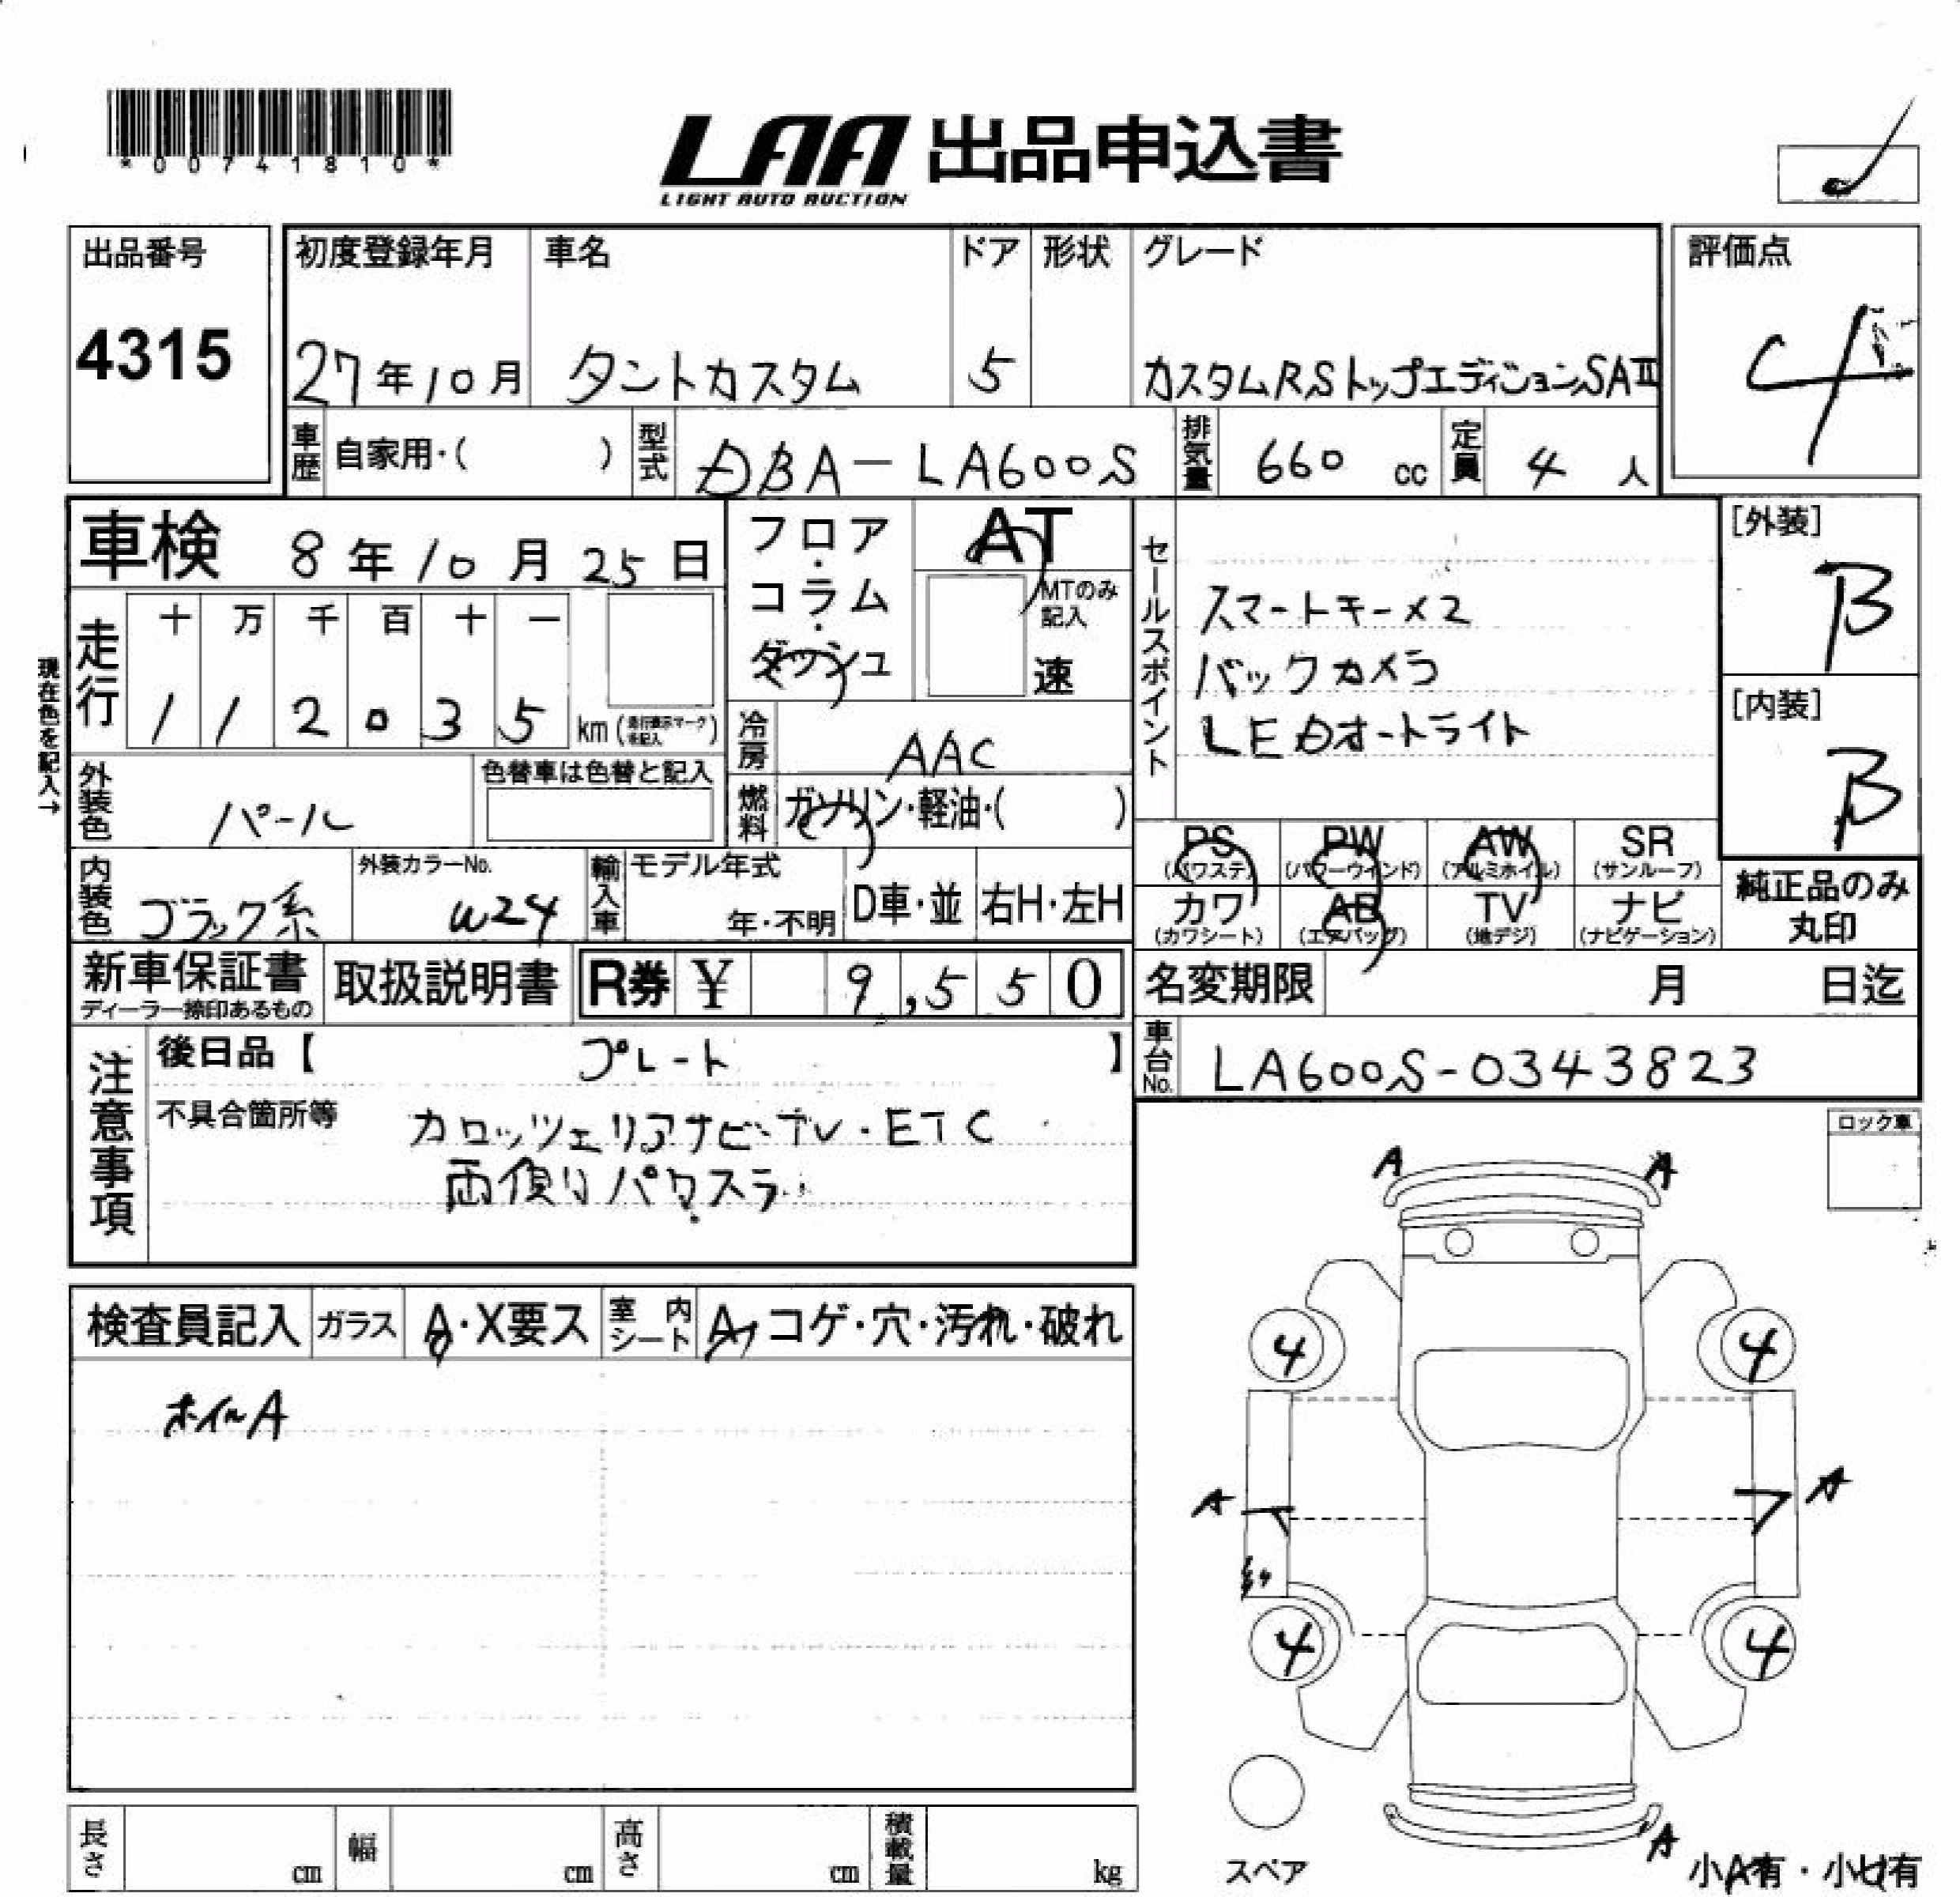 *00741810*
LAA 出品申込書
LIGHT AUTO AUCTION
出品番号
4315
初度登録年月
27年10月
車名
タントカスタム
ドア
5
形状
グレード
カスタムRSトップエディションSAⅡ
評価点
4
車歴 自家用・( )
型式 DBA-LA600S
排気量 660 cc
定員 4 人
車検 8年10月25日
フロア・コラム・ダッシュ
AT
MTのみ記入
速
現在色を記入→
走行
十 万 千 百 十 一
1 1 2 0 3 5 km (走行表示マーク等記入)
冷房 AAC
燃料 ガソリン・軽油・( )
セールスポイント
スマートキー×2
バックカメラ
LEDオートライト
[外装]
B
[内装]
B
外装色 パール
色替車は色替と記入
内装色 ブラック系
外装カラーNo.
W24
輸入車
モデル年式
年・不明
D車・並
右H・左H
PS (パワステ)
PW (パワーウインド)
AW (アルミホイル)
SR (サンルーフ)
カワ (カワシート)
AB (エアバッグ)
TV (地デジ)
ナビ (ナビゲーション)
純正品のみ丸印
新車保証書
ディーラー捺印あるもの
取扱説明書
R券 ¥ 9,550
名変期限 月 日迄
車台No. LA600S-0343823
注意事項
後日品【 プレート 】
不具合箇所等
カロッツェリアナビ・TV・ETC
両側パワスラ
ロック車
検査員記入
ガラス A・X要ス
室内シート A・コゲ・穴・汚れ・破れ
ホイルA
A A
4 4
A A
4 4
A
スペア
小A有・小U有
長さ cm
幅 cm
高さ cm
積載量 kg